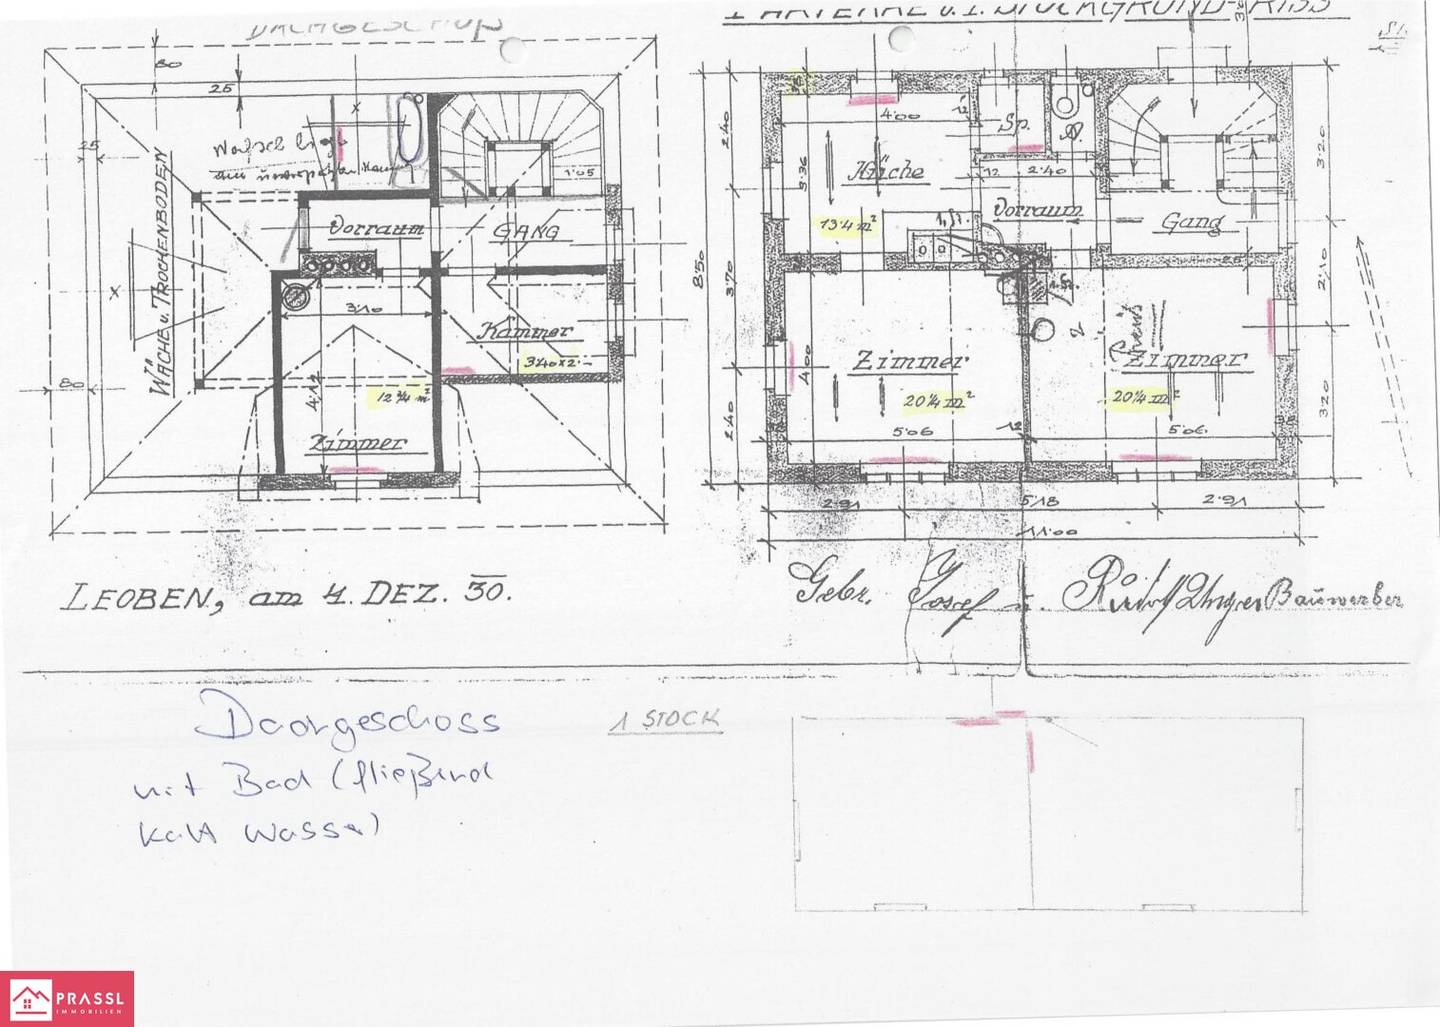 DACHGESCHOß
PARTERRE u. 1. STOCKGRUND-RISS
80
25
25
1·05
WÄCHE u. TROCHENBODEN
Vorraum
GANG
3·10
Kammer
3·40×2·-
80
4·12
12 3/4 m²
Zimmer
4·00
12
Sp.
2·40
3·36
Küche
12
2·40
3·20
13·4 m²
Vorraum
Gang
8·50
3·70
25
2·10
Zimmer
Zimmer
4·00
20 1/4 m²
20 1/4 m²
2·40
3·20
38
5·06
12
5·06
38
2·91
5·18
2·91
11·00
LEOBEN, am 4. DEZ. 30.
Gebr. Josef u. Rudolf Unger Bauwerber
Daargeschoss
1 STOCK
mit Bad (fließend
kalt Wasser)
PRASSL
IMMOBILIEN